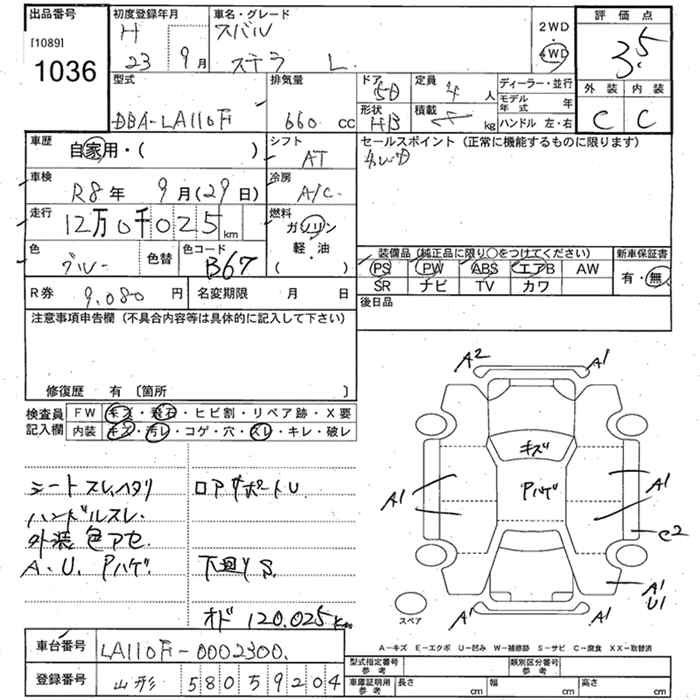 出品番号
[1089]
1036
初度登録年月
H
23 9月
車名・グレード
スバル
ステラ L
2WD
・
4WD
評価点
3.5
外装 内装
C C
型式
DBA-LA110F
排気量
660 CC
ドア
5D
定員
4 人
形状
HB
積載
kg
ディーラー・並行
モデル年式 年
ハンドル 左・右
車歴
自家用・( )
シフト
AT
車検
R8年 9月(29日)
冷房
A/C
走行
12万0千025km
燃料
ガソリン
軽・油
( )
色
ブルー
色替
色コード
B67
セールスポイント (正常に機能するものに限ります)
4WD
装備品 (純正品に限り○をつけてください)
PS PW ABS エアB AW
SR ナビ TV カワ
新車保証書
有・無
R券 9,080円
名変期限 月 日
後日品
注意事項申告欄 (不具合内容等は具体的に記入して下さい)
修復歴 有 〔箇所 〕
検査員記入欄
FW キズ・飛石・ヒビ割・リペア跡・X要
内装 キズ・汚レ・コゲ・穴・スレ・キレ・破レ
シートスレ、ヘタリ
ハンドルスレ.
外装色アセ.
A.U.Pハゲ
ロアサポートU
下廻りS
オド 120,025km
A2 A1
キズ
Pハゲ
A1 A1
C2
A1
U1
A1 A1
スペア
A-キズ E-エクボ U-凹み W-補修跡 S-サビ C-腐食 XX-取替済
車台番号
LA110F-0002300.
登録番号
山形 580 5 9204
型式指定番号
参考
類別区分番号
参考
車庫証明用
参考
長さ cm
幅 cm
高さ cm